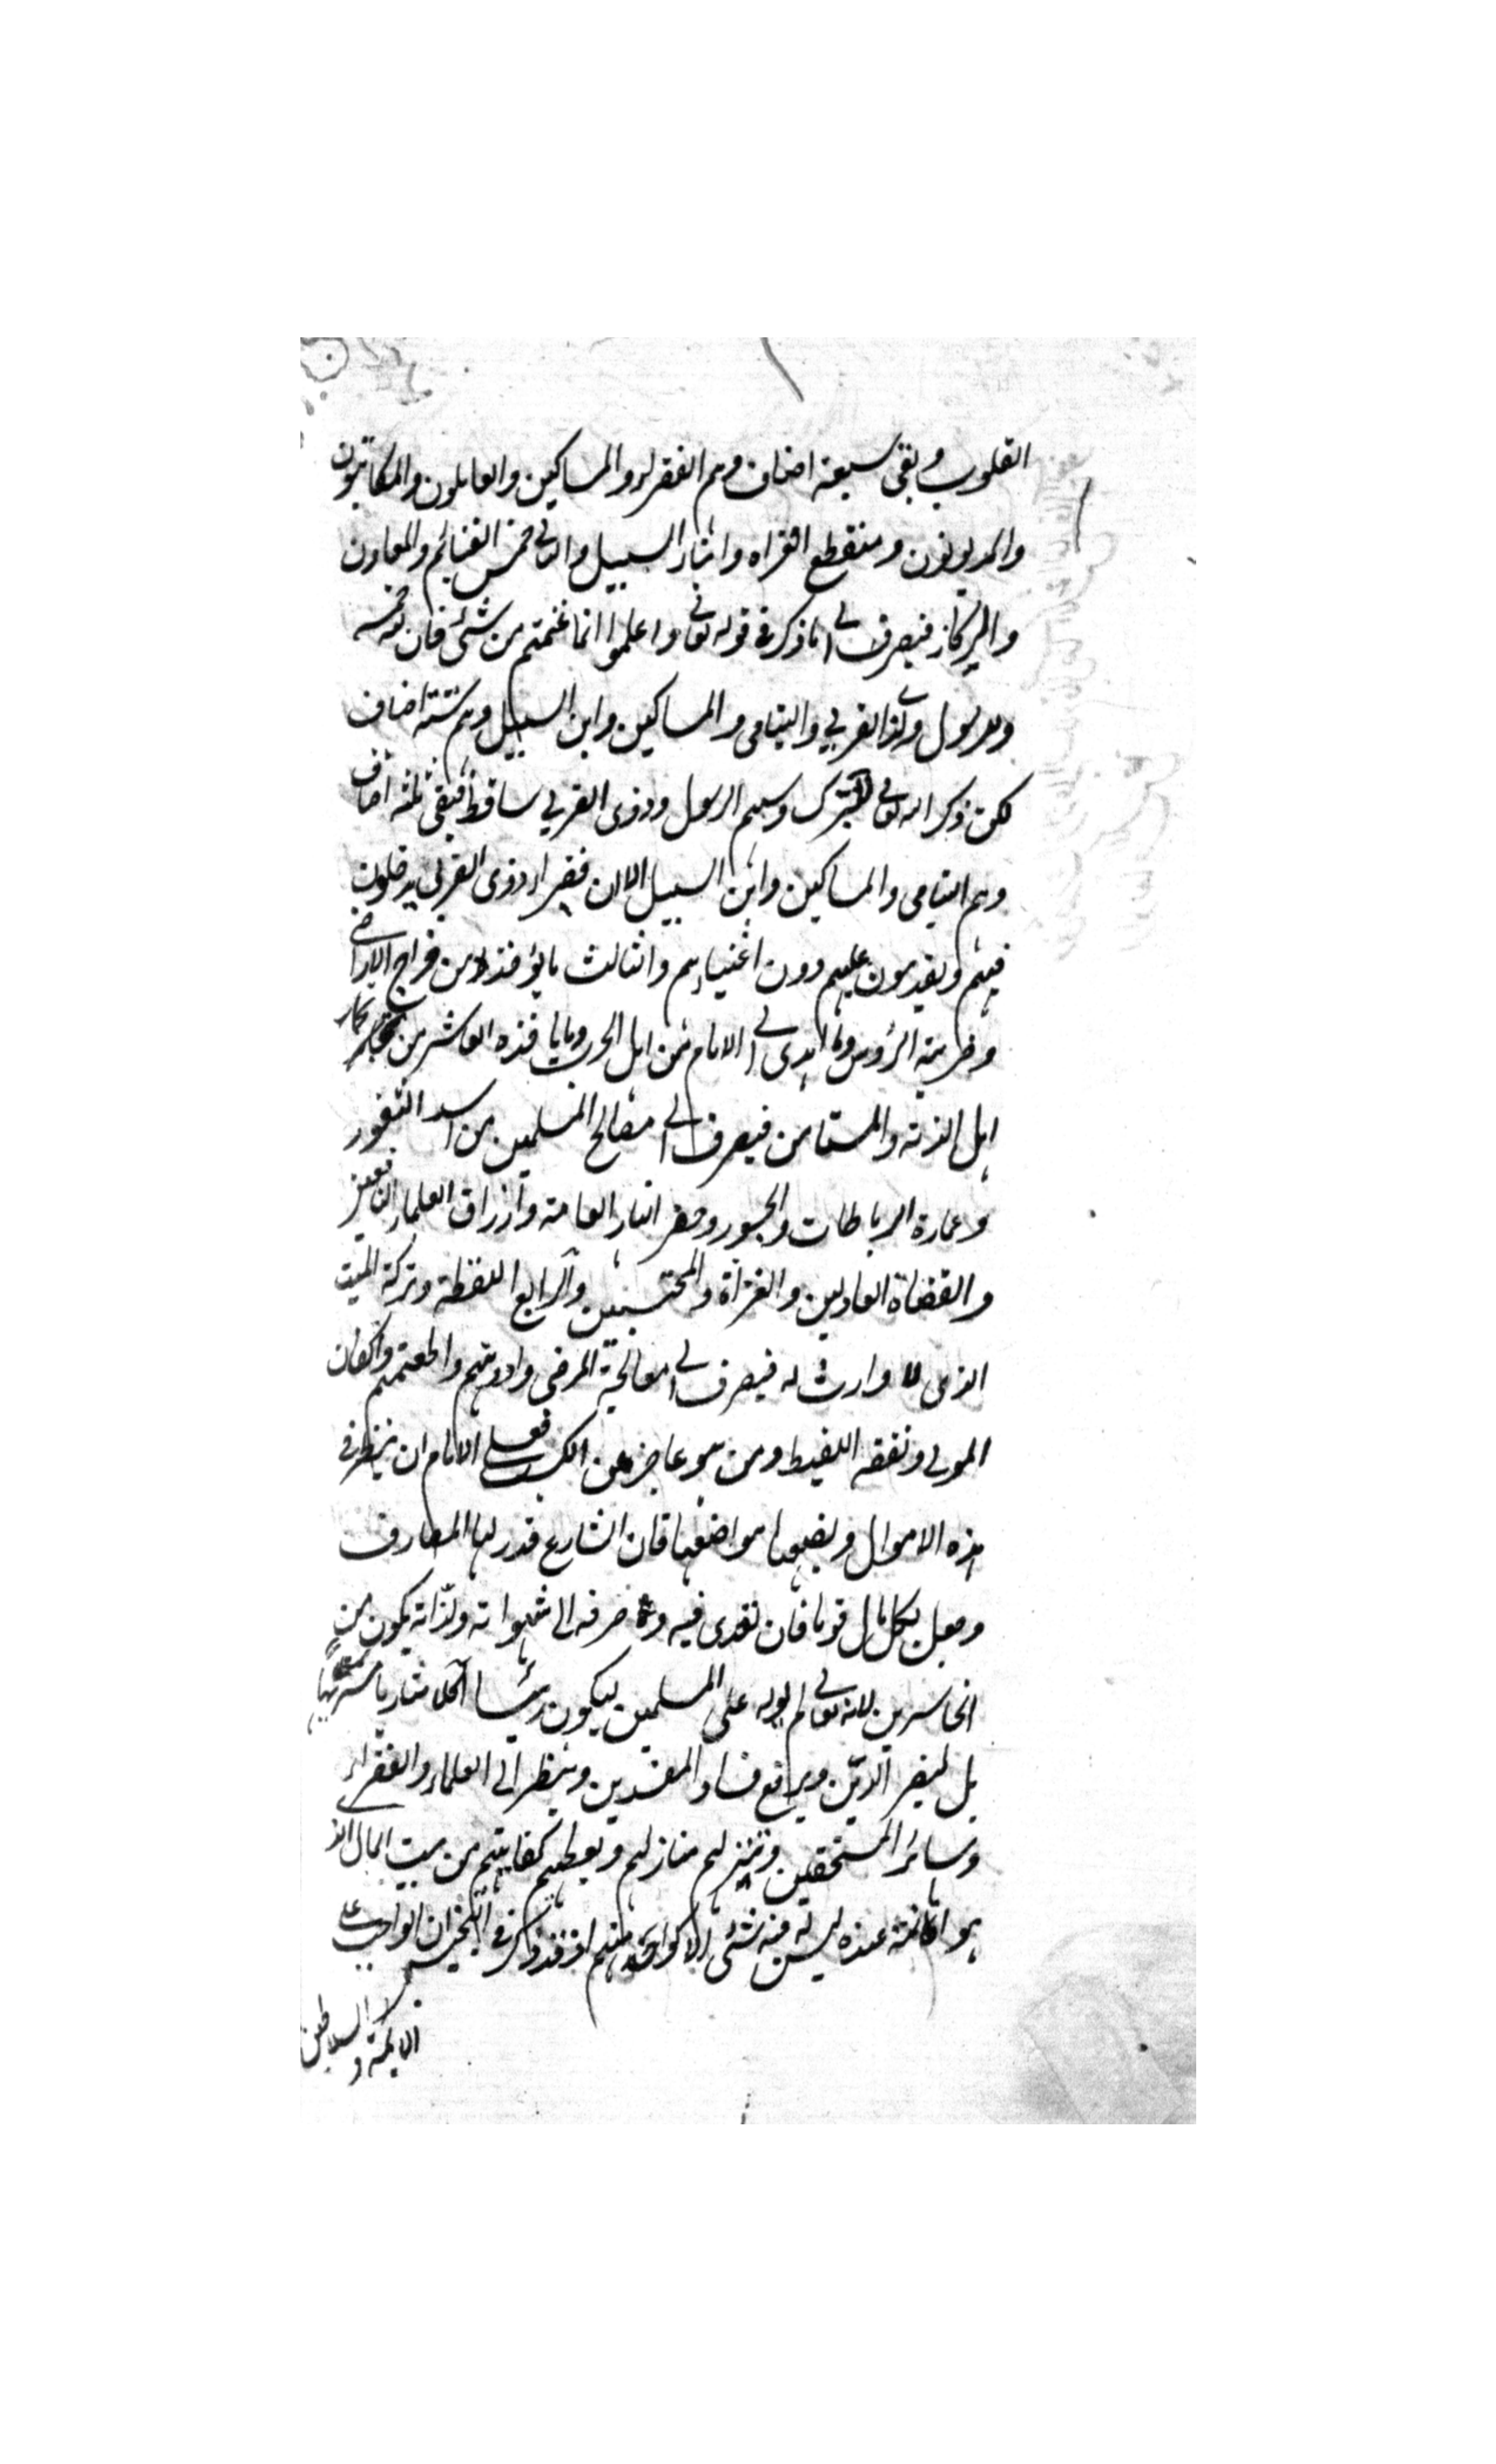 القلوب وبقى سبعة اصناف وهم الفقراء والمساكين والعاملون والمكاتبون
والمديونون ومنقطع الغزاه وابناء السبيل والثاني خمس الغنائم والمعادن
والركاز فيصرف الى ما ذكر في قوله تعالى واعلموا انما غنمتم من شئ فان لله خمسه
وللرسول ولذا القربي واليتامى والمساكين وابن السبيل وهم ستة اصناف
لكن ذكر الله تعالى للتبرك وسهم الرسول وذوى القربي ساقط فبقى ثلثة اصناف
وهم اليتامى والمساكين وابن السبيل الا ان فقراء ذوى القربى يدخلون
فيهم ويقدمون عليهم دون اغنياءهم والثالث ما يؤخذ من خراج الاراضي
وجزية الرؤس وما اهدى الى الامام من اهل الحرب وما ياخذه العاشر من تجار
اهل الذمة والمستامن فيصرف الى مصالح المسلمين من سد الثغور
وعمارة الرباطات والجسور وحفر انهار العامة وارزاق العلماء النافعين
والقضاة العادلين والغزاة والمحتسبين والرابع اللقطة وتركة الميت
الذى لا وارث له فيصرف الى معالجة المرضى وادويتهم واطعمتهم واكفان
الموتى ونفقه اللقيط ومن هو عاجز عن الكسب فعلى الامام ان ينظر في
هذه الاموال ويضعها مواضعها فان الشارع قدر لها المصارف
وجعل لكل مال قوما فان تعدى فيه و صرفه الى شهواته ولذاته يكون من
الخاسرين لانه تعالى لم يوله على المسلمين ليكون رئيسا آكلا شاربا مستريحا
بل لينصر الدين ويرفع فساد المفسدين وينظر الى العلماء والفقراء
وسائر المستحقين وينزلهم منازلهم ويعطيهم كفايتهم من بيت المال الذى
هو امانة عنده ليس له منه شئ الا كواحد منهم اذ قد ذكر في ان الواجب على
الايمة والسلاطين